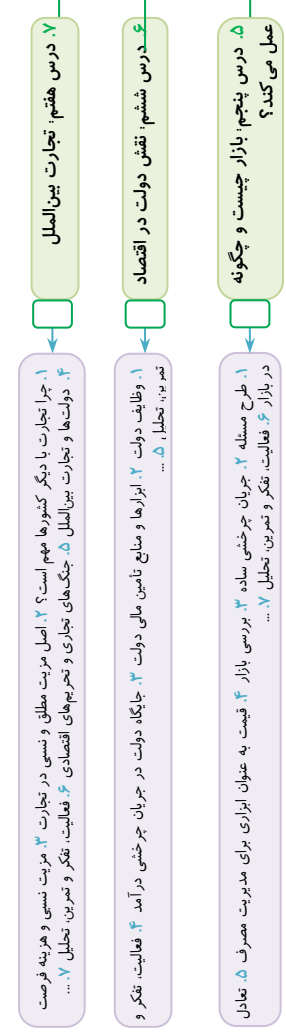 ۵. درس پنجم: بازار چیست و چگونه
عمل می‌کند؟
۱. طرح مسئله ۲. جریان چرخشی ساده ۳. بررسی بازار ۴. قیمت به عنوان ابزاری برای مدیریت مصرف ۵. تعادل
در بازار ۶. فعالیت، تفکر و تمرین، تحلیل ۷. ...
۶. درس ششم: نقش دولت در اقتصاد
۱. وظایف دولت ۲. ابزارها و منابع تأمین مالی دولت ۳. جایگاه دولت در جریان چرخشی درآمد ۴. فعالیت، تفکر و
تمرین، تحلیل ۵. ...
۷. درس هفتم: تجارت بین‌الملل
۱. چرا تجارت با دیگر کشورها مهم است؟ ۲. اصل مزیت مطلق و نسبی در تجارت ۳. مزیت نسبی و هزینه فرصت
۴. دولت‌ها و تجارت بین‌الملل ۵. جنگ‌های تجاری و تحریم‌های اقتصادی ۶. فعالیت، تفکر و تمرین، تحلیل ۷. ...